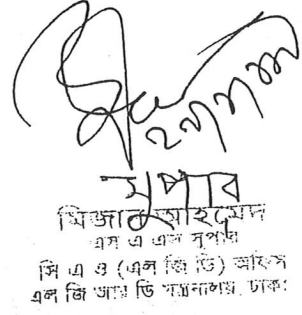 সুপার
মিজান আহমেদ
এস এ এস সুপার
সি এ ও (এল জি ডি) অফিস
এল জি আর ডি মন্ত্রনালয়, ঢাকা